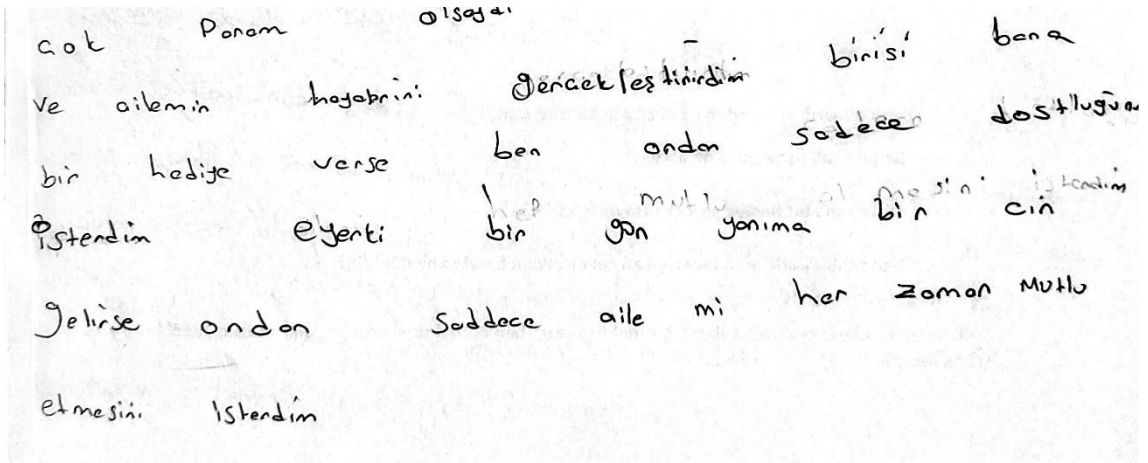 çok Param olsaydı
ve ailemin hayallerini gerçekleştirirdim birisi bana
bir hediye verse ben ondan sadece dostluğun
istendim eyerki bir gün yanıma bin cin
mutlu etmesini istendim
gelirse ondan saddece aile mi her zaman Mutlu
etmesini istendim